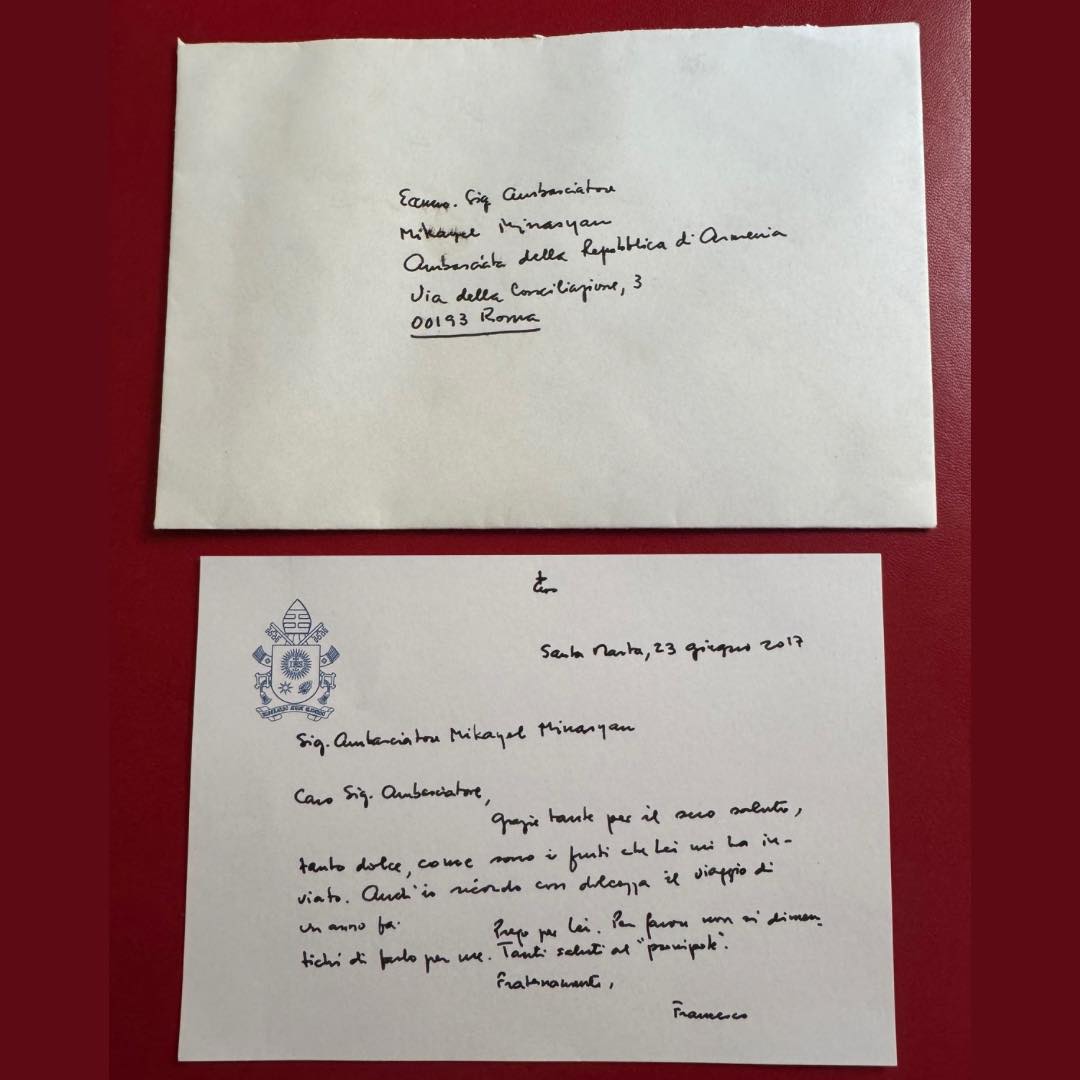 Eccmo. Sig Ambasciatore
Mikayel Minasyan
Ambasciata della Repubblica di Armenia
Via della Conciliazione, 3
00193 Roma
Santa Marta, 23 giugno 2017
IHS
MISERANDO ATQUE ELIGENDO
Sig. Ambasciatore Mikayel Minasyan
Caro Sig. Ambasciatore,
grazie tante per il suo saluto,
tanto dolce, come sono i frutti che Lei mi ha in-
viato. Anch'io ricordo con dolcezza il viaggio di
un anno fa.
Prego per Lei. Per favore non si dimen-
tichi di farlo per me. Tanti saluti al "principote".
Fraternamente,
Francesco